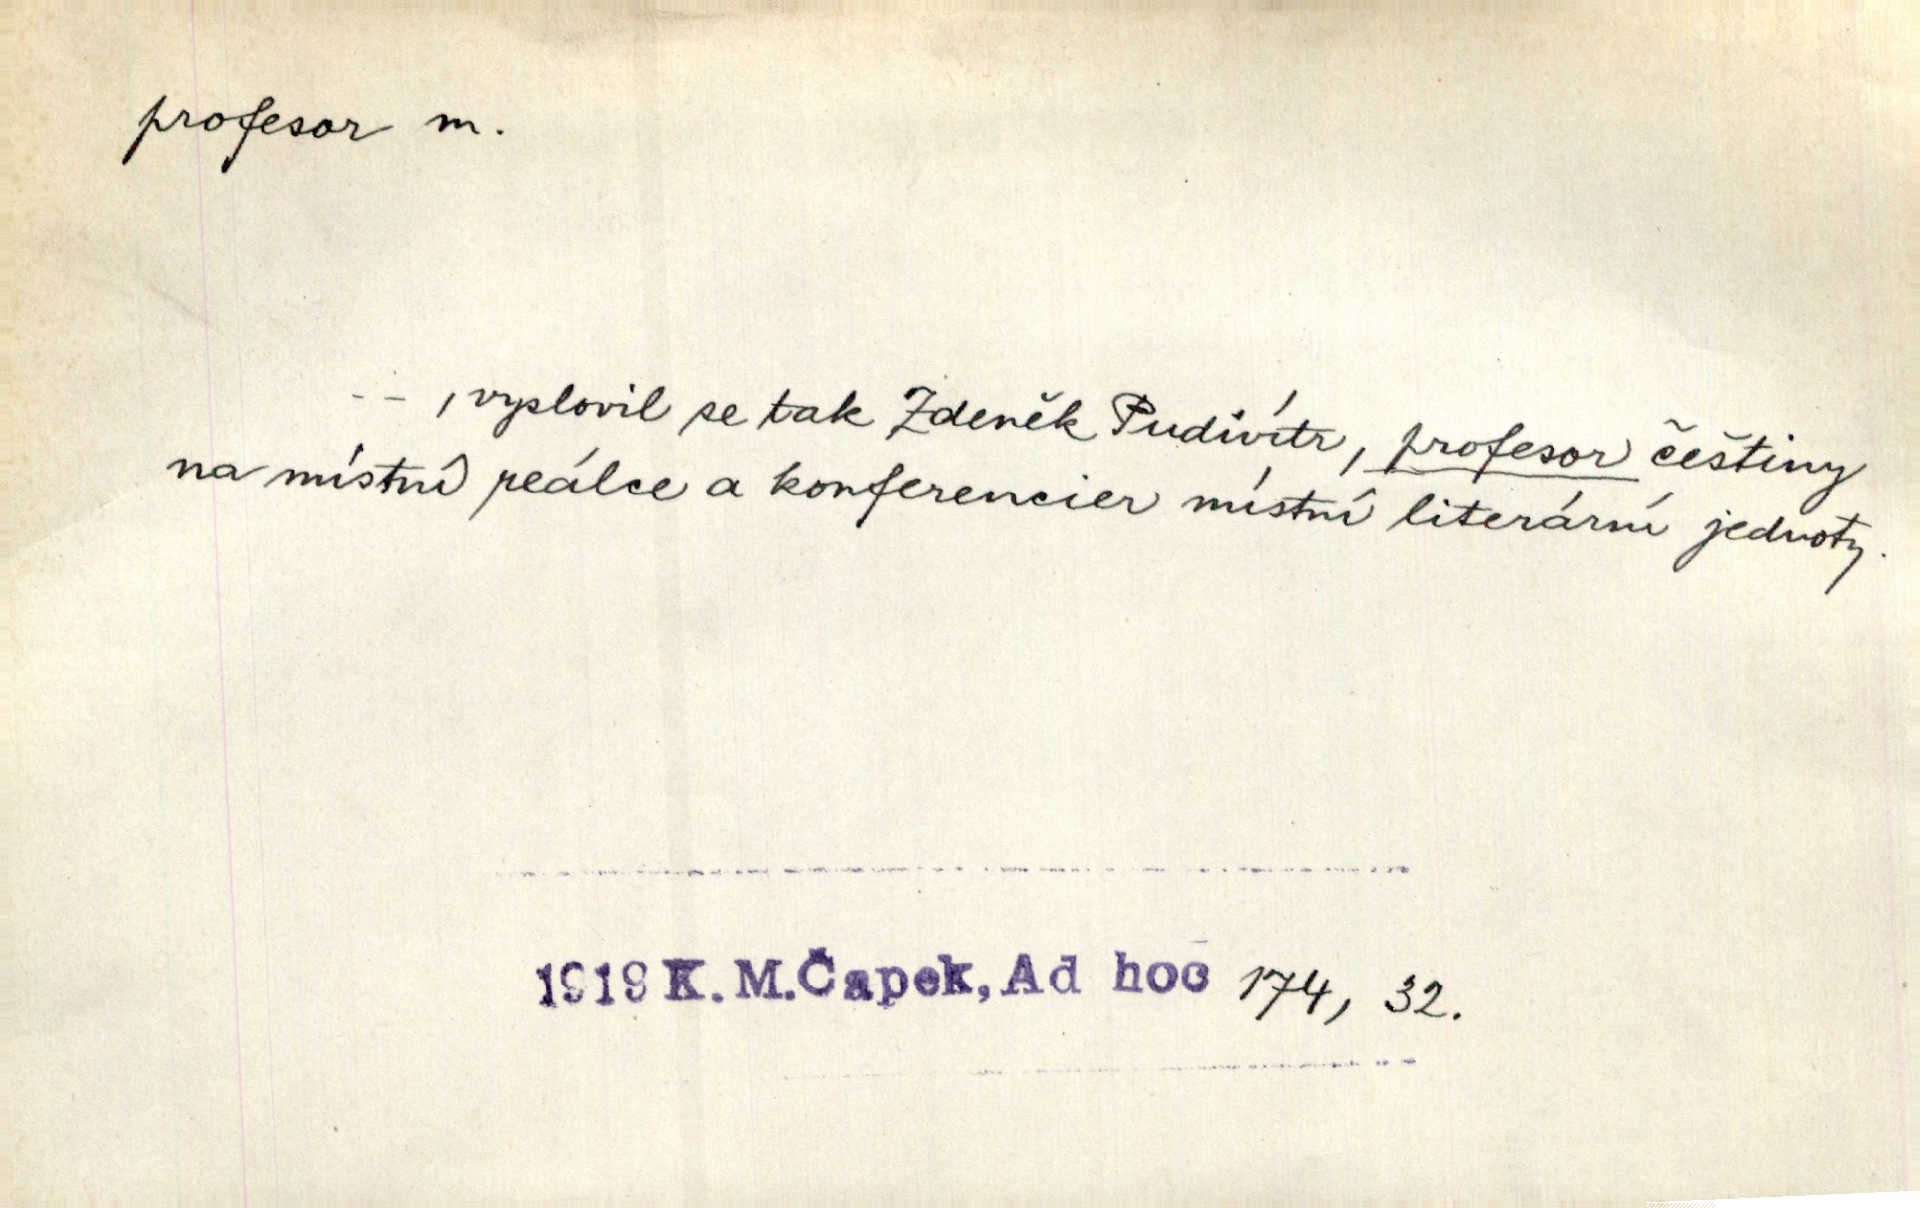 profesor m.
- - , vyslovil se tak Zdeněk Pudivítr, profesor češtiny
na místní reálce a konferencier místní literární jednoty.
1919 K. M. Čapek, Ad hoc 174, 32.